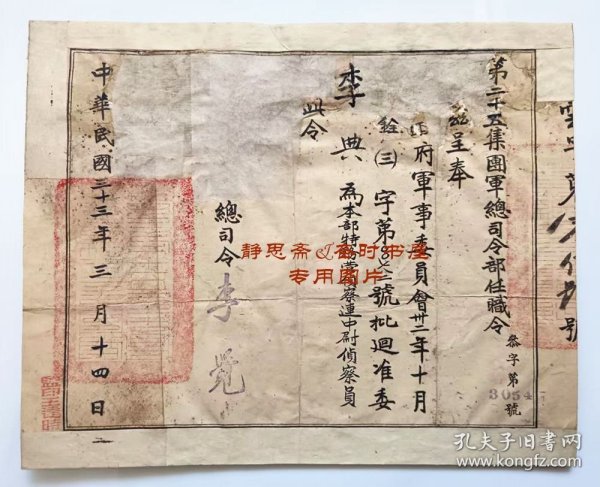 第二十五集團軍總司令部任職令
叅字第 號
3054
茲呈奉
府軍事委員會卅二年十月
銓(三)字第 號批迴准委
李典為本部特務 連中尉偵察員
此令
總司令 李覺
中華民國三十三年三月十四日
號
静思斋&旧时书屋
专用图片
孔夫子旧书网
www.kongfz.com